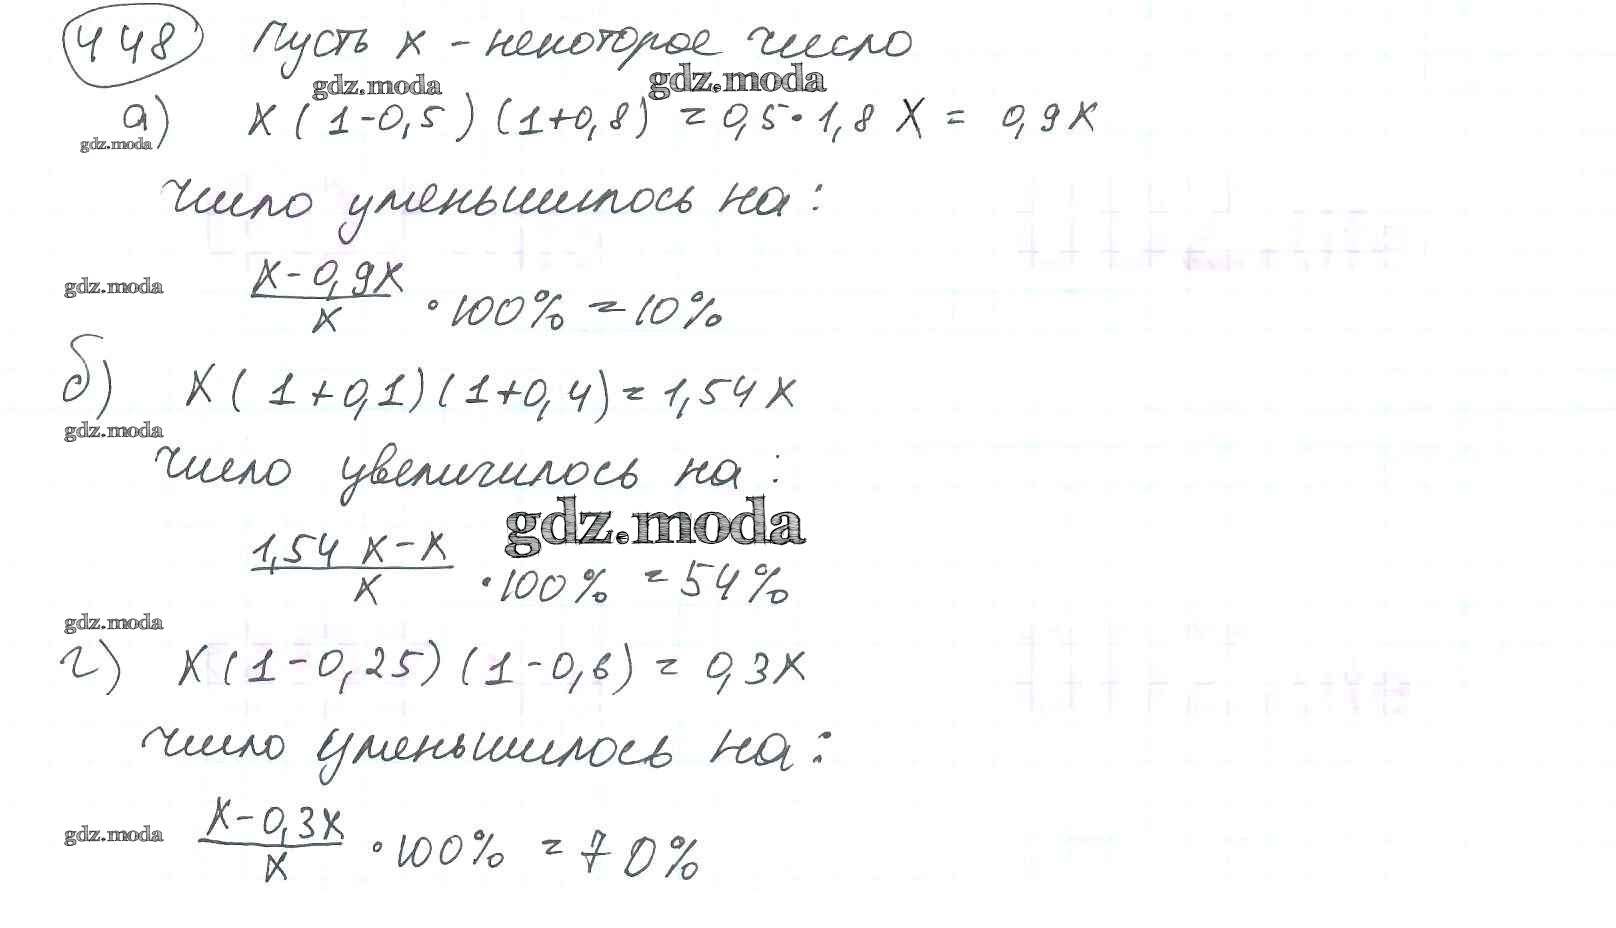 448 Пусть x - некоторое число
gdz.moda gdz.moda
а) x(1-0,5)(1+0,8) = 0,5·1,8 x = 0,9x
gdz.moda
число уменьшилось на:
gdz.moda
x-0,9x / x · 100% = 10%
б) x(1+0,1)(1+0,4) = 1,54x
gdz.moda
число увеличилось на:
gdz.moda
1,54x-x / x · 100% = 54%
gdz.moda
г) x(1-0,25)(1-0,6) = 0,3x
число уменьшилось на:
gdz.moda
x-0,3x / x · 100% = 70%